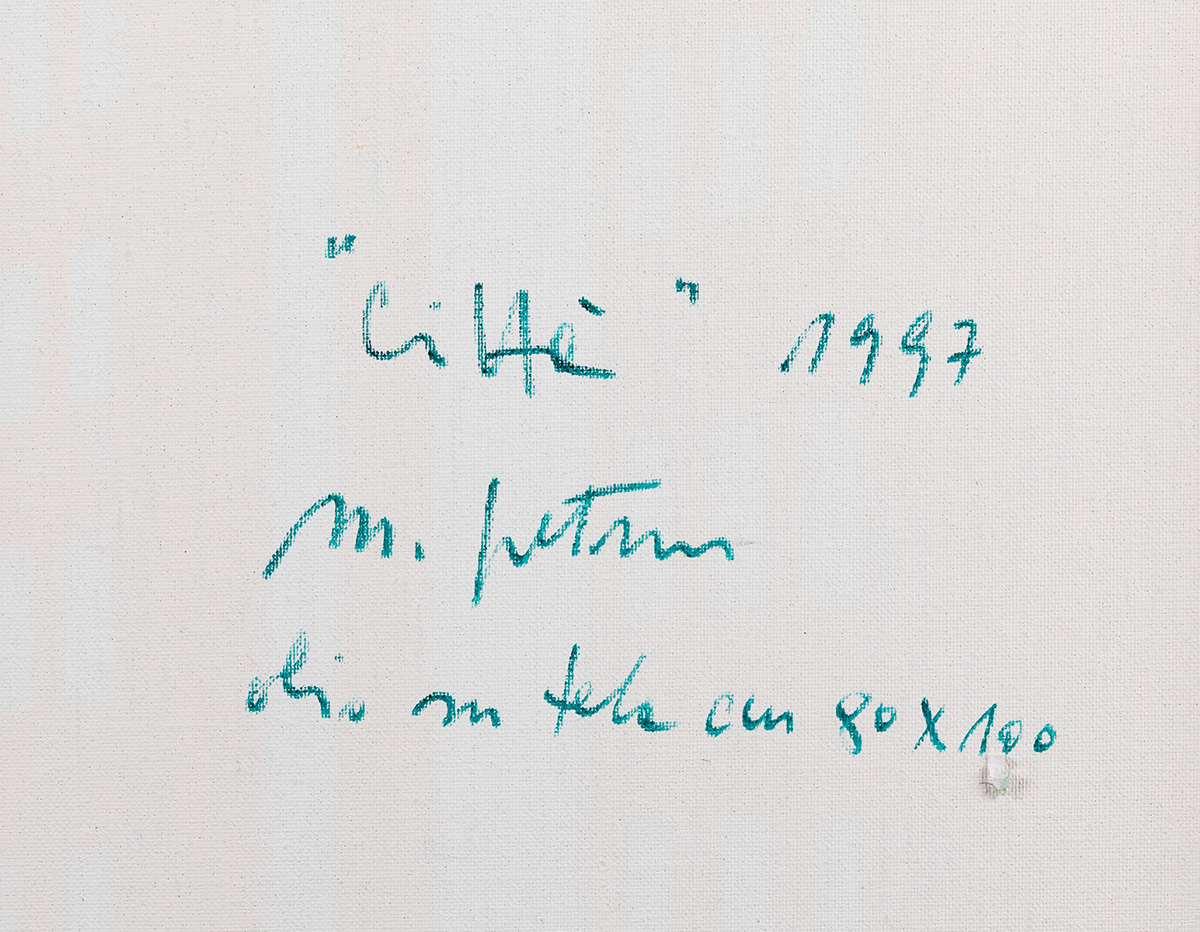 "Città" 1997
M. Petrus
olio su tela cm 80x100